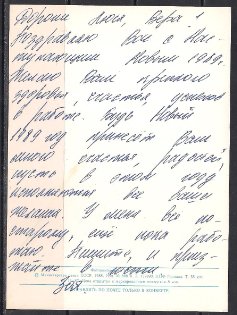 Дорогие Люся, Вера!
Поздравляю Вас с Нас-
тупающим Новым 1989г.
Желаю Вам крепкого
здоровья, счастья, успехов
в работе. Пусть Новый
1989 год принесёт Вам
много счастья, радостей,
пусть в этом году
исполнятся все ваши
желания. У меня всё по-
старому, ещё пока рабо-
таю. Пишите, и приез-
жайте в гости.
Зоя